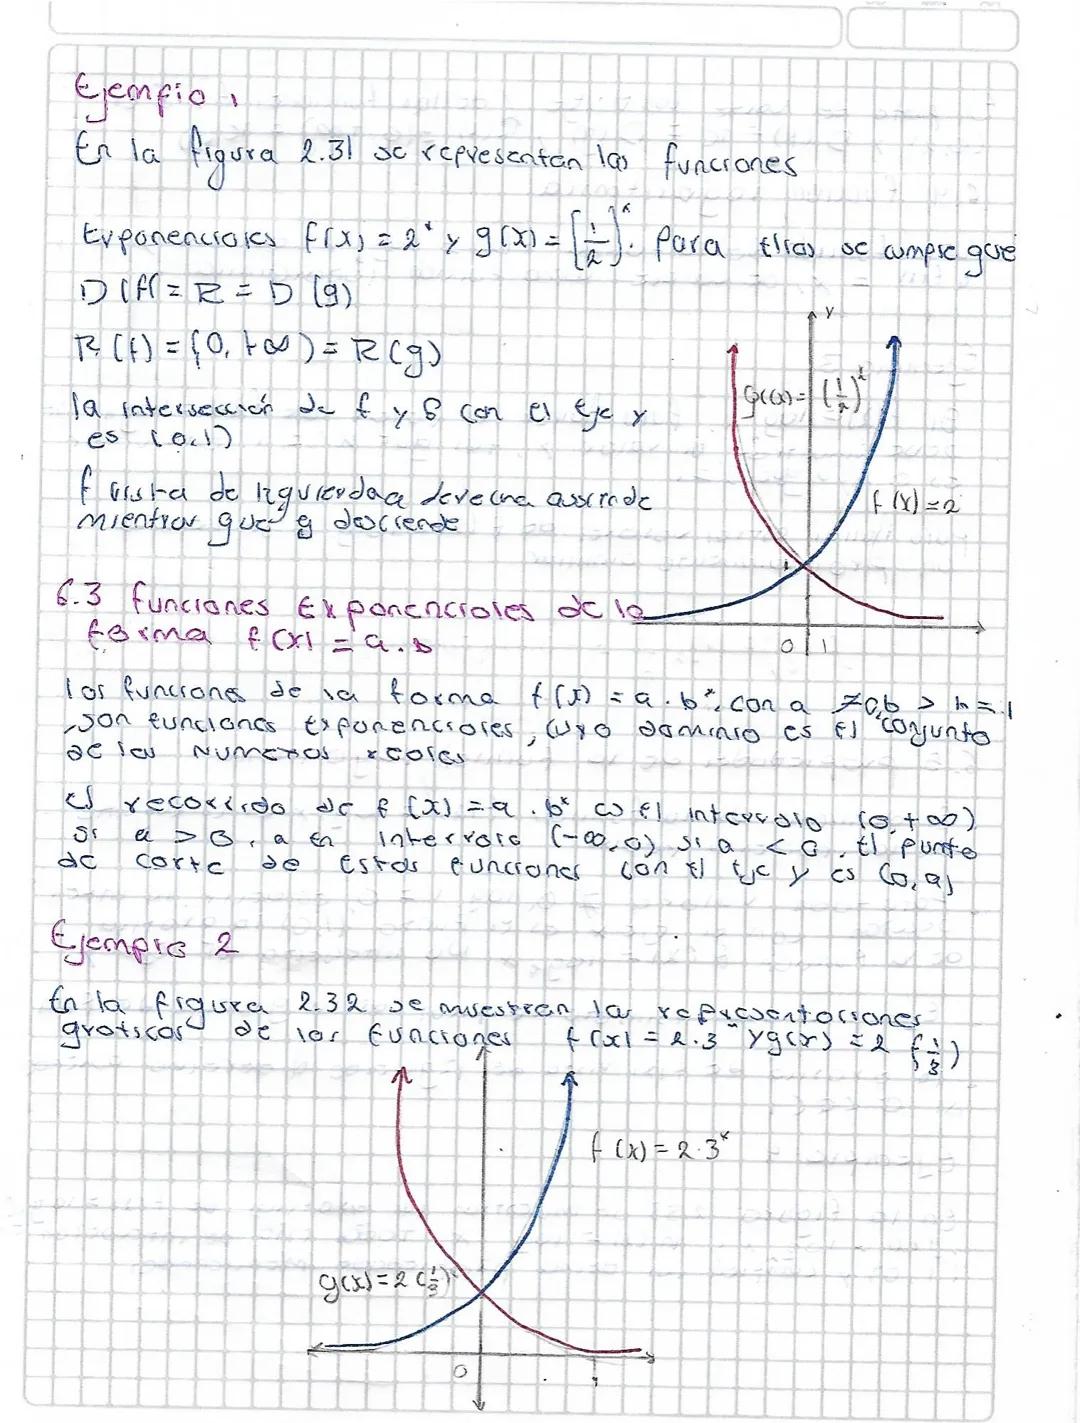 Ejemplo 1
En la figura 2.31 se representan las funciones
Exponenciales f(x) = 2ˣ y g(x) = [1/2]ˣ. Para ellas se cumple que
D (f( = R = D (g)
R (f) = (0, +∞) = R(g)
la intersección de f y g con el eje y
es (0,1)
f vista de izquierda a derecha asciende
mientras que g desciende
y
g(x) = (1/2)ˣ
f (x) = 2
1
0 1
6.3 funciones Exponenciales de la
forma f(x) = a.b
los funciones de la forma f(x) = a.bˣ, con a ≠0,b >
son funciones exponenciales, cuyo dominio es el conjunto
de los Numeros reales
el recorrido de f (x) = a.bˣ es el intervalo (0,+∞)
si a > 0, a en intervalo (-∞,0) si a < 0. El punto
de corte de estas funciones con el eje y es (0,a)
Ejemplo 2
En la figura 2.32 se muestran las representaciones
graficas de las funciones f(x) = 2.3ˣ y g(x) = 2 (1/3)
f (x) = 2.3ˣ
g(x) = 2 (1/3)ˣ
0 1